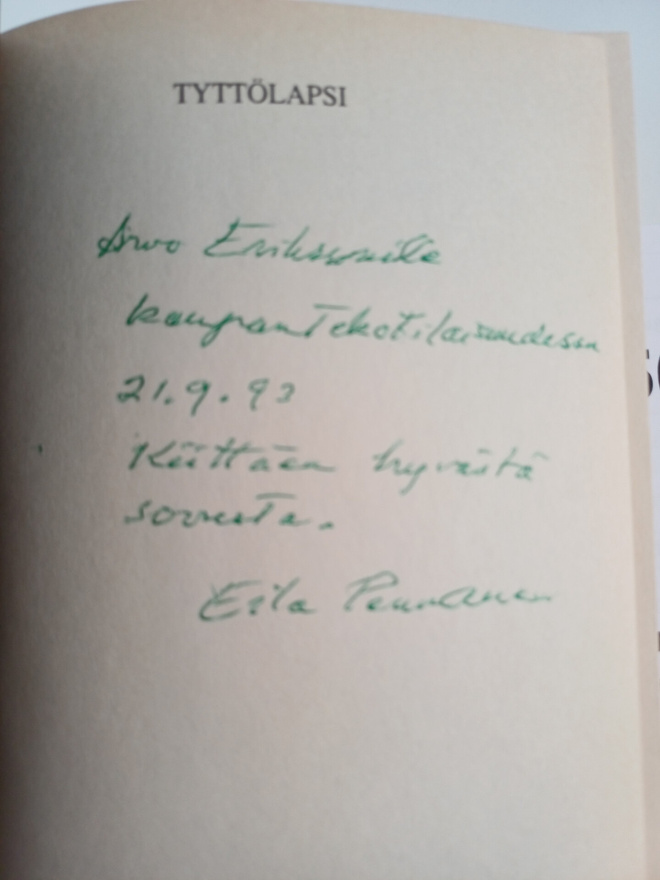 TYTTÖLAPSI
Arvo Erikssonille
kaupantekotilaisuudessa
21.9.93
Kiittäen hyvästä
sovusta.
Eila Pennanen